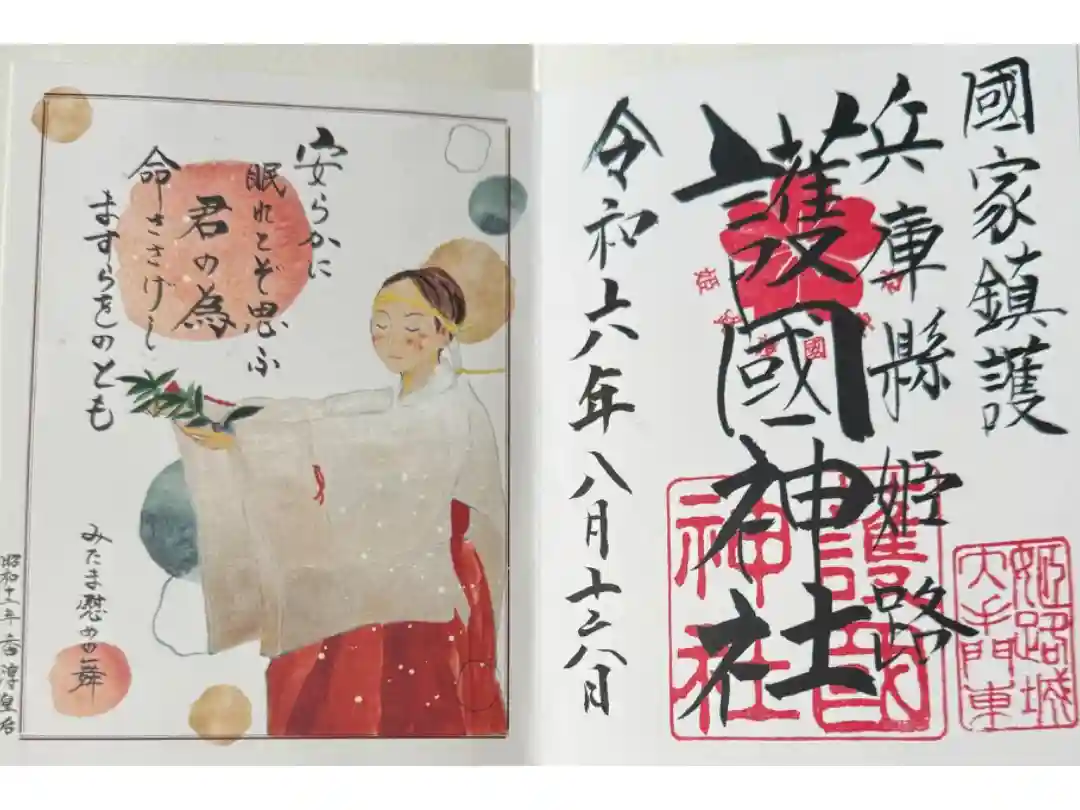 國家鎮護
兵庫縣姫路
護國神社
令和六年八月十六日
護國
神社
姫路城
大手門東
安らかに
眠れとぞ思ふ
君の為
命ささげし
ますらをのとも
みたま慰めの舞
香淳皇后